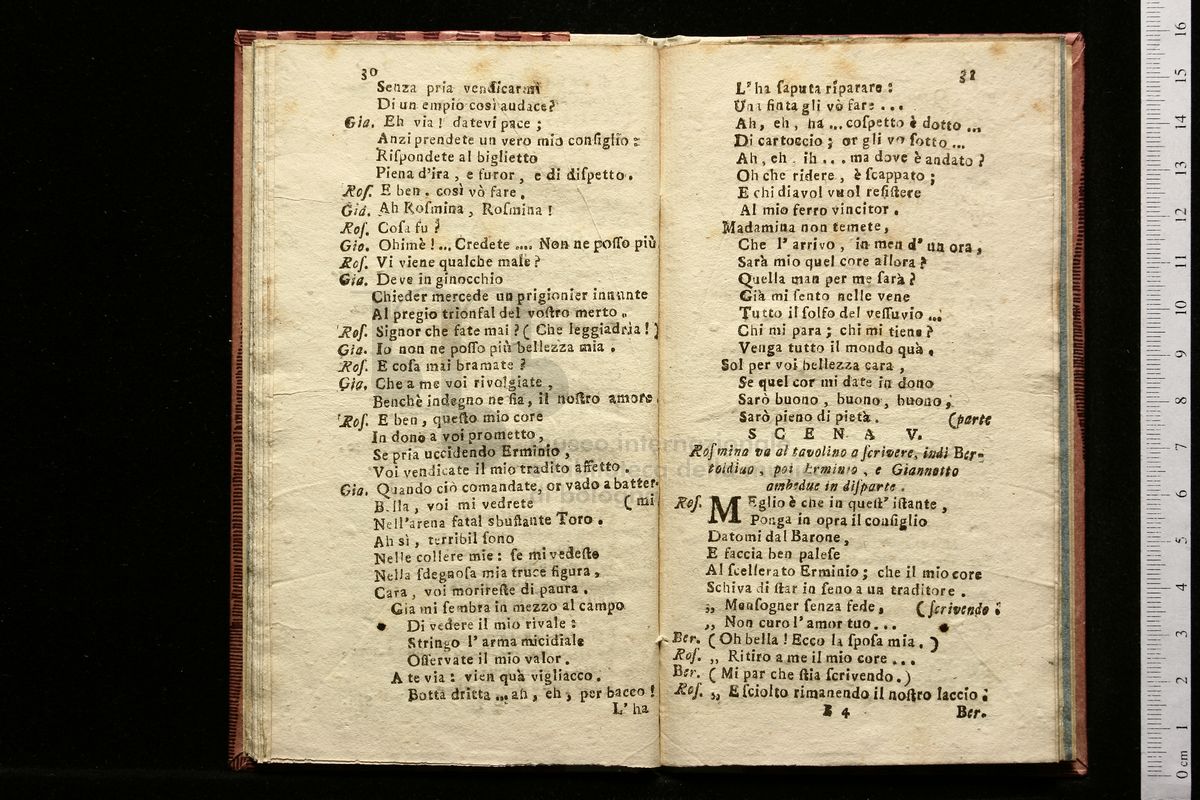 30
Senza pria vendicarmi
Di un empio così audace?
Gia. Eh via! datevi pace;
Anzi prendete un vero mio consiglio:
Rispondete al biglietto
Piena d'ira, e furor, e di dispetto.
Ros. E ben. così vò fare.
Gia. Ah Rosmina, Rosmina!
Ros. Cosa fu?
Gio. Ohimè!... Credete .... Non ne posso più
Ros. Vi viene qualche male?
Gia. Deve in ginocchio
Chieder mercede un prigionier innante
Al pregio trionfal del vostro merto.
Ros. Signor che fate mai? ( Che leggiadria! )
Gia. Io non ne posso più bellezza mia.
Ros. E cosa mai bramate?
Gia. Che a me voi rivolgiate,
Benchè indegno ne sia, il nostro amore.
Ros. E ben, questo mio core
In dono a voi prometto,
Se pria uccidendo Erminio,
Voi vendicate il mio tradito affetto.
Gia. Quando ciò comandate, or vado a batter-
B.lla, voi mi vedrete (mi
Nell'arena fatal sbustante Toro.
Ah sì, terribil sono
Nelle collere mie: se mi vedeste
Nella sdegnosa mia truce figura,
Cara, voi morireste di paura.
Gia mi sembra in mezzo al campo
Di vedere il mio rivale:
Stringo l'arma micidiale
Osservate il mio valor.
A te via: vien quà vigliacco.
Botta dritta ... ah, eh, per bacco!
L'ha
31
L'ha saputa riparare:
Una finta gli vò fare ...
Ah, eh, ha ... cospetto è dotto ...
Di cartoccio; or gli vo sotto ...
Ah, eh, ih ... ma dove è andato?
Oh che ridere, è scappato;
E chi diavol vuol resistere
Al mio ferro vincitor.
Madamina non temete,
Che l'arrivo, in men d'un ora,
Sarà mio quel core allora?
Quella man per me sarà?
Già mi sento nelle vene
Tutto il solfo del vessuvio ...
Chi mi para; chi mi tiene?
Venga tutto il mondo quà.
Sol per voi bellezza cara,
Se quel cor mi date in dono
Sarò buono, buono, buono,
Sarò pieno di pietà. (parte
SCENA V.
Rosmina va al tavolino a scrivere, indi Ber-
toldino, poi Erminio, e Giannotto
ambedue in disparte.
Ros. MEglio è che in quest' istante,
Ponga in opra il consiglio
Datomi dal Barone,
E faccia ben palese
Al scellerato Erminio; che il mio core
Schiva di star in seno a un traditore.
„ Mensogner senza fede, (scrivendo:
„ Non curo l'amor tuo...
Ber. ( Oh bella! Ecco la sposa mia. )
Ros. „ Ritiro a me il mio core ...
Ber. ( Mi par che stia scrivendo.)
Ros. „ E sciolto rimanendo il nostro laccio:
B 4 Ber.
museo internazionale
di bologna
0 cm 1 2 3 4 5 6 7 8 9 10 11 12 13 14 15 16